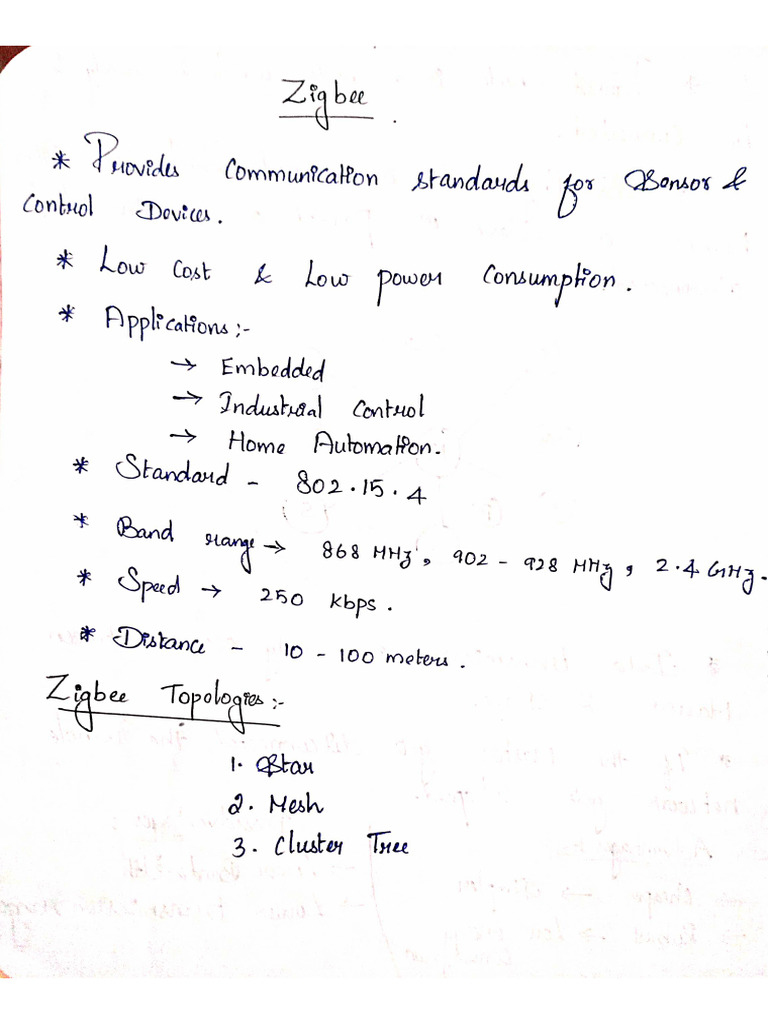 Zigbee.
* Provides Communication standards for Sensor &
Control Devices.
* Low Cost & Low power Consumption.
* Applications:-
→ Embedded
→ Industrial Control
→ Home Automation.
* Standard - 802.15.4
* Band range → 868 MHz, 902 - 928 MHz, 2.4 GHz.
* Speed → 250 Kbps.
* Distance - 10 - 100 meters.
Zigbee Topologies:-
1. Star
2. Mesh
3. Cluster Tree